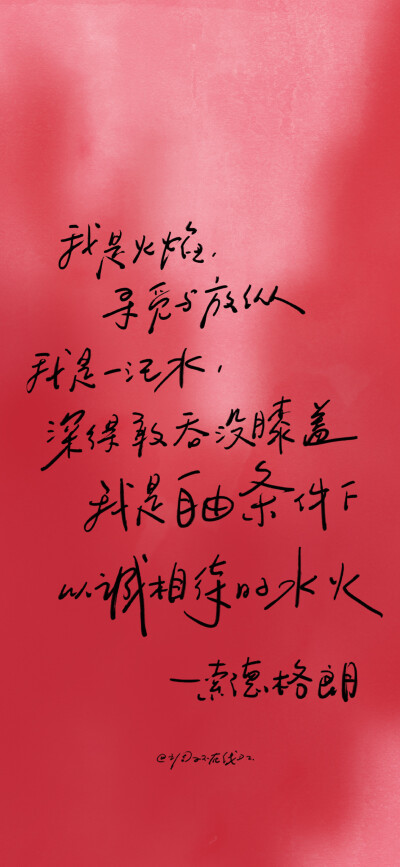 我是火焰，
寻觅与放纵
我是一汜水，
深得敢吞没膝盖
我是自由条件下
以诚相待的水火
—索德格朗